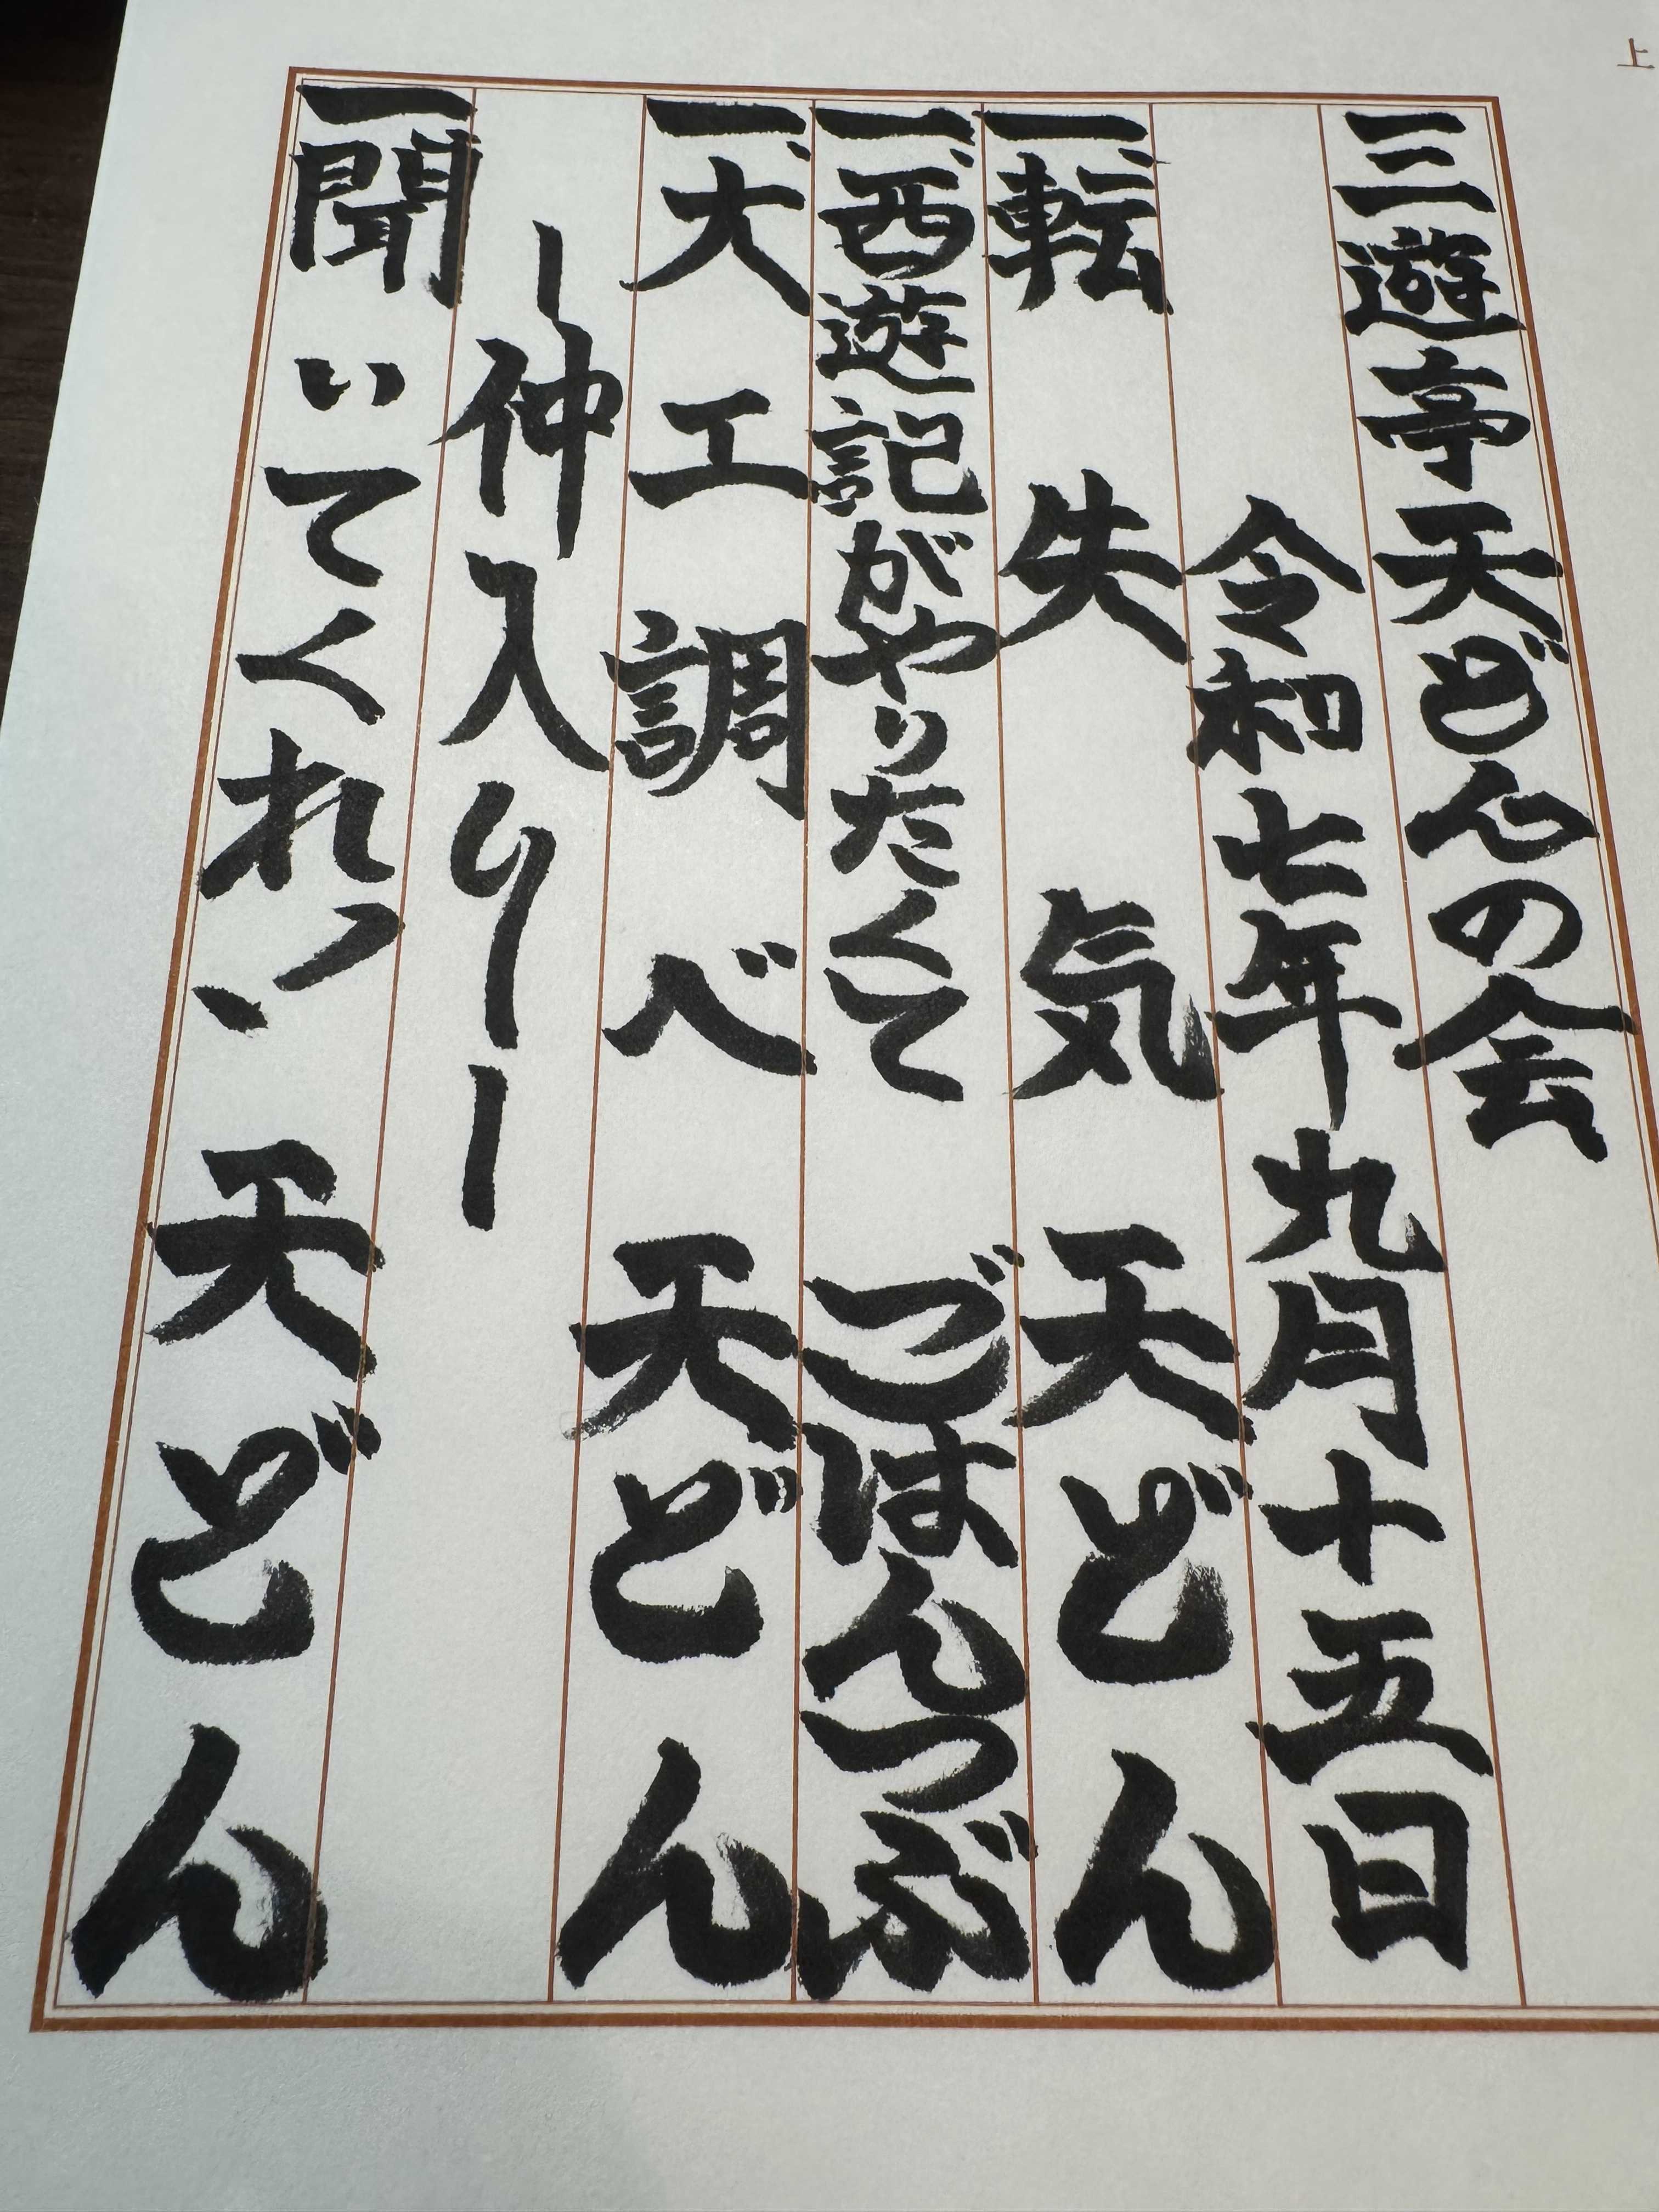 上
三遊亭天どんの会
令和七年九月十五日
一、転失気 天どん
一、西遊記がやりたくて ごはんつぶ
一、大工調べ 天どん
ー仲入りー
一、聞いてくれっ、 天どん